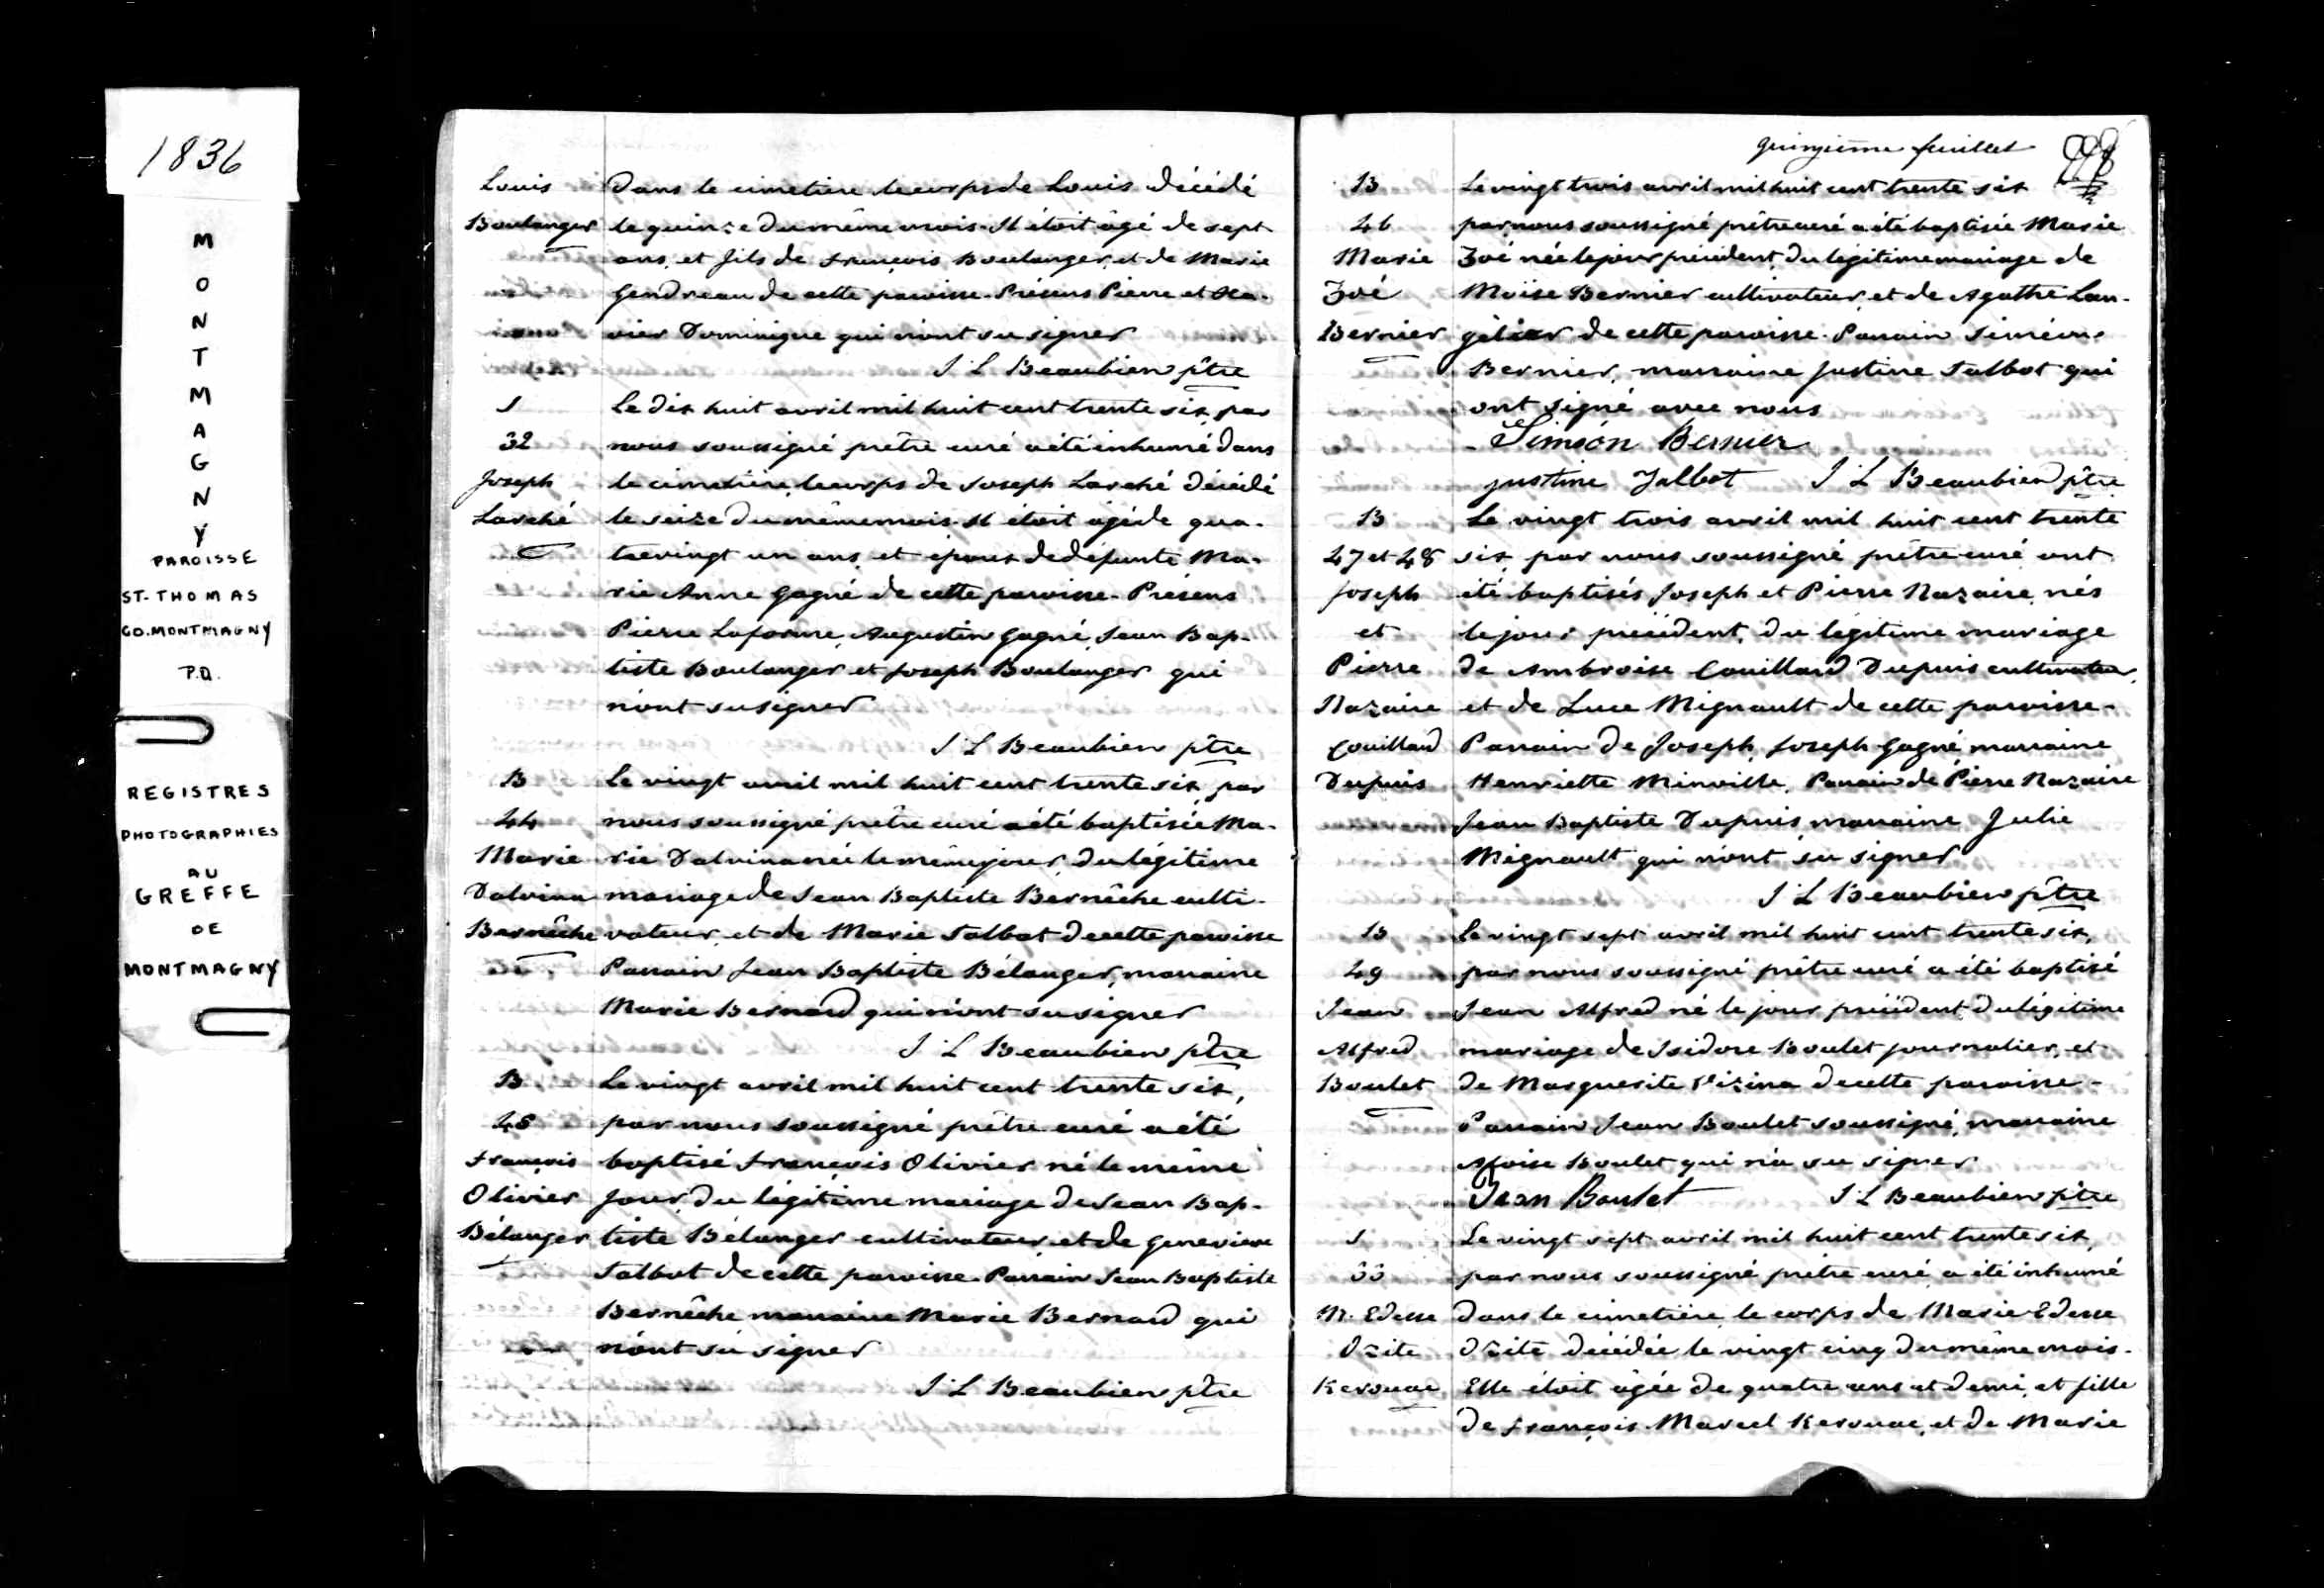 1836
M
O
N
T
M
A
G
N
Y
PAROISSE
ST. THOMAS
CO. MONTMAGNY
P.Q.
REGISTRES
PHOTOGRAPHIES
AU
GREFFE
DE
MONTMAGNY
Louis
Boulanger
dans le cimetiere le corps de Louis décédé
le quinze du même mois. Il étoit âgé de sept
ans, et fils de François Boulanger, et de Marie
Gendreau de cette paroisse. Présens Pierre et Xa-
vier Dominique qui n'ont su signer
J L Beaubien ptre
S
32
Joseph
Larché
Le dix huit avril mil huit cent trente six, par
nous soussigné prêtre curé a été inhumé dans
le cimetière, le corps de Joseph Larché décédé
le seize du même mois. Il étoit agé de qua-
trevingt un ans, et époux de défunte Ma-
rie Anne Gagné de cette paroisse. Présens
Pierre Laforme, Augustin Gagné, Jean Bap-
tiste Boulanger et Joseph Boulanger qui
n'ont su signer
J L Beaubien ptre
B
44
Marie
Dalvina
Bernêche
Le vingt avril mil huit cent trente six, par
nous soussigné prêtre curé a été baptisée Ma-
rie Dalvina née le même jour, du légitime
mariage de Jean Baptiste Bernêche culti-
vateur, et de Marie Talbot de cette paroisse
Parrain Jean Baptiste Bélanger, marraine
Marie Bernard qui n'ont su signer
J L Beaubien ptre
B
45
François
Olivier
Bélanger
Le vingt avril mil huit cent trente six,
par nous soussigné prêtre curé a été
baptisé François Olivier né le même
jour, du légitime mariage de Jean Bap-
tiste Bélanger cultivateur, et de Genevieve
Talbot de cette paroisse. Parrain Jean Baptiste
Bernêche, marraine Marie Bernard qui
n'ont su signer
J L Beaubien ptre
quinzieme feuillet
B
46
Marie
Zoé
Bernier
Le vingt trois avril mil huit cent trente six
par nous soussigné prêtre curé a été baptisée Marie
Zoé née le jour précédent, du légitime mariage de
Moïse Bernier cultivateur, et de Agathe Lan-
gelier de cette paroisse. Parrain Siméon
Bernier, marraine Justine Talbot qui
ont signé avec nous
Siméon Bernier
justine Talbot J L Beaubien ptre
B
47 et 48
Joseph
et
Pierre
Nazaire
Couillard
Dupuis
Le vingt trois avril mil huit cent trente
six, par nous soussigné prêtre curé ont
été baptisés Joseph et Pierre Nazaire, nés
le jour précédent, du légitime mariage
de Ambroise Couillard Dupuis cultivateur,
et de Luce Mignault de cette paroisse-
Parrain de Joseph, Joseph Gagné, marraine
Henriette Minville, Parrain de Pierre Nazaire
Jean Baptiste Dupuis, marraine Julie
Mignault qui n'ont su signer
J L Beaubien ptre
B
49
Jean
Alfred
Boulet
Le vingt sept avril mil huit cent trente six,
par nous soussigné prêtre curé a été baptisé
Jean Alfred né le jour précédent, du légitime
mariage de Isidore Boulet journalier, et
de Marguerite Vizina de cette paroisse-
Parrain Jean Boulet soussigné, marraine
Boulet qui n'a su signer
Jean Boulet J L Beaubien ptre
S
33
M. Edesse
Ozite
Kerouac
Le vingt sept avril mil huit cent trente six,
par nous soussigné prêtre curé, a été inhumé
dans le cimetière, le corps de Marie Edesse
Ozite décédée le vingt cinq du même mois.
Elle étoit âgée de quatre ans et demi, et fille
de François Marcel Kerouac, et de Marie